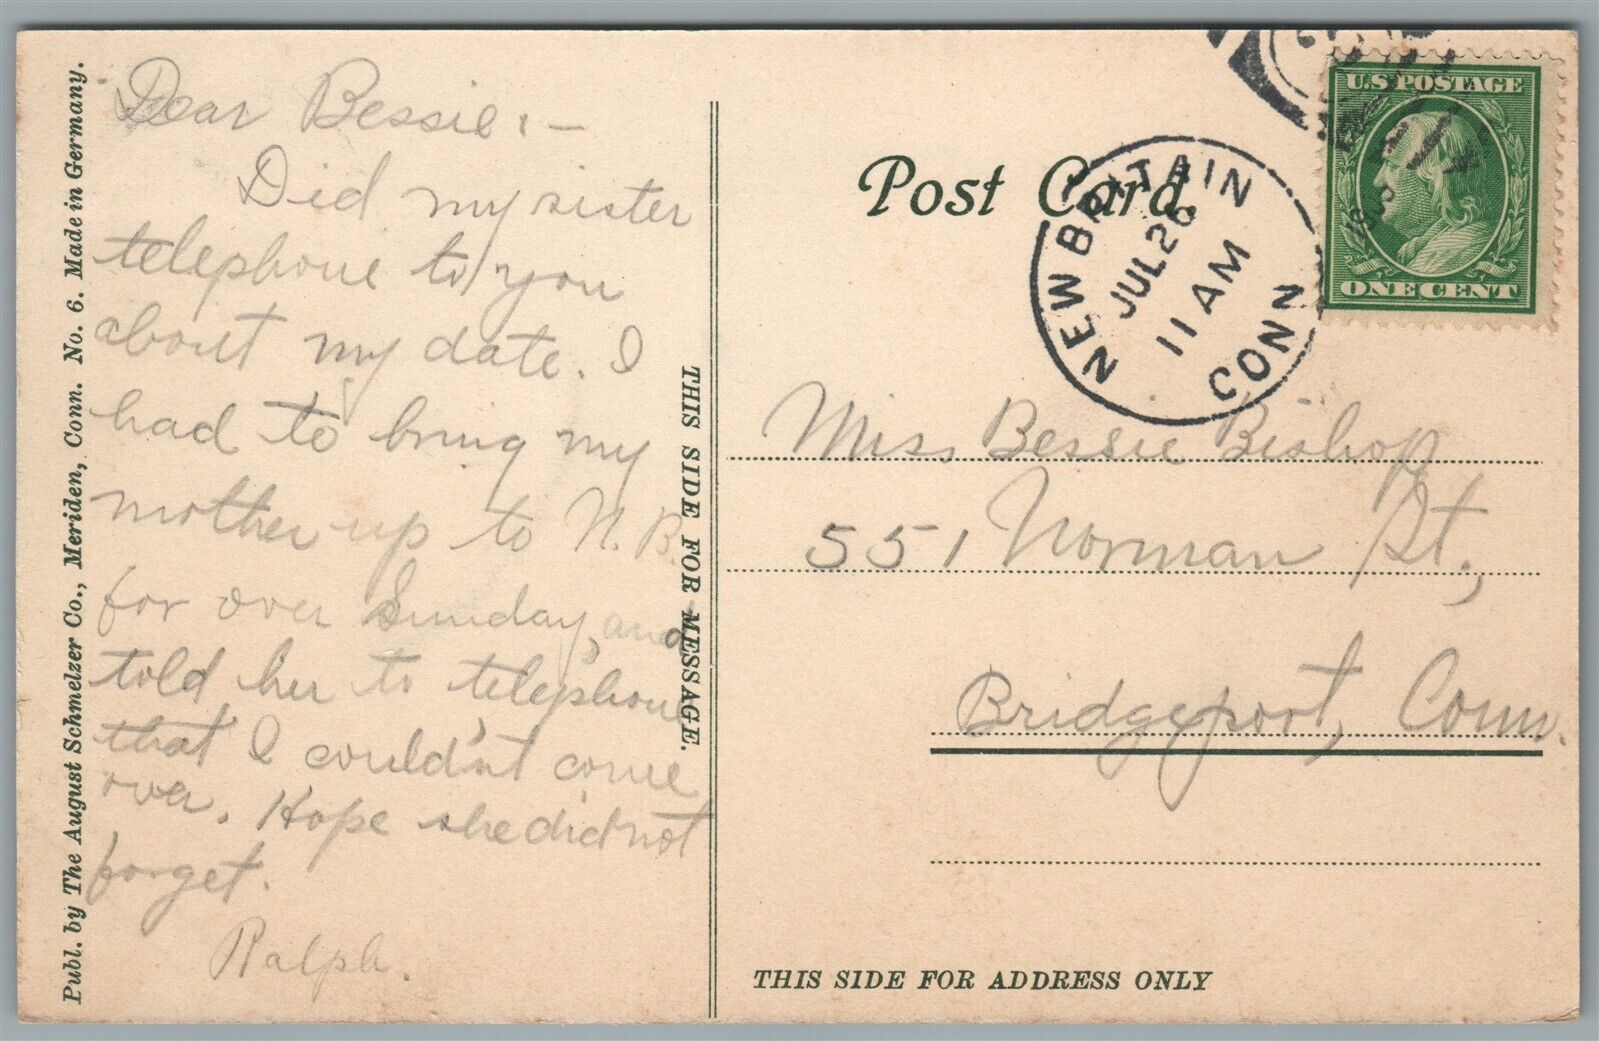 Publ. by The August Schmelzer Co., Meriden, Conn. No. 6. Made in Germany.
Dear Bessie:—
Did my sister
telephone to you
about my date. I
had to bring my
mother up to N.B.
for over Sunday, and
told her to telephone
that I couldn't come
over. Hope she did not
forget.
Ralph.
THIS SIDE FOR MESSAGE.
Post Card.
NEW BRITAIN
JUL 26
11 AM
CONN
U.S. POSTAGE
ONE CENT
Miss Bessie Bishop
551 Norman St.,
Bridgeport, Conn.
THIS SIDE FOR ADDRESS ONLY